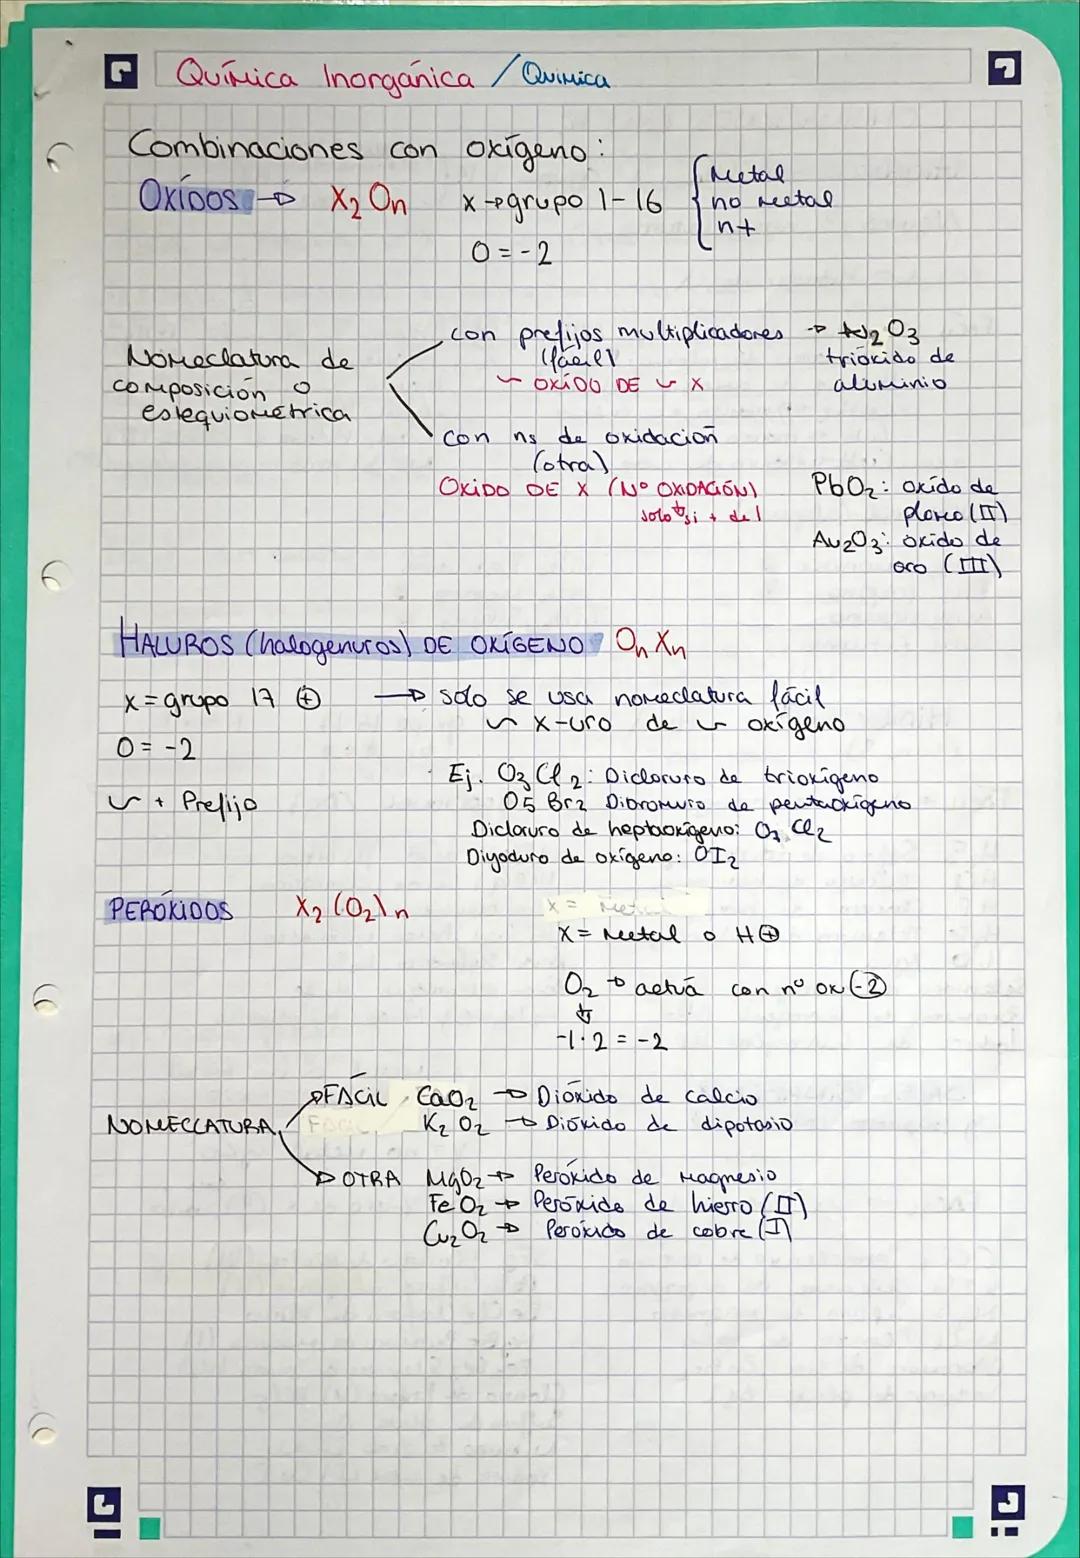 Química Inorgánica / Química
Combinaciones con oxígeno:
OXÍDOS → X₂On x→grupo 1-16 { Metal
no metal
n+
O = -2
con prefijos multiplicadores → Al₂O₃
(fácil)
trióxido de
aluminio
Nomeclatura de
composición o
estequiométrica
~ OXÍDO DE ~ X
con ns de oxidación
(otra)
OXIDO DE X (Nº OXIDACIÓN)
solo si + de 1
PbO₂: oxído de
plomo (II)
Au₂O₃: oxido de
oro (III)
HALUROS (halogenuros) DE OXÍGENO On Xn
x = grupo 17 ⊕ → solo se usa nomeclatura fácil
~ x-uro de ~ oxígeno
O = -2
~ + Prefijo
Ej. O₃Cl₂: Dicloruro de trioxígeno
O5 Br₂ Dibromuro de pentaoxígeno
Dicloruro de heptaoxígeno: O₇ Cl₂
Diyoduro de oxígeno: OI₂
PERÓXIDOS X₂(O₂)n
X = Metal o H⊕
O₂ → actuá con nº ox (-2)
↓
-1·2 = -2
NOMECLATURA
FÁCIL CaO₂ → Dióxido de calcio
K₂O₂ → Dióxido de dipotasio
OTRA MgO₂ → Peróxido de magnesio
FeO₂ → Peróxido de hierro (II)
Cu₂O₂ → Peróxido de cobre (I)